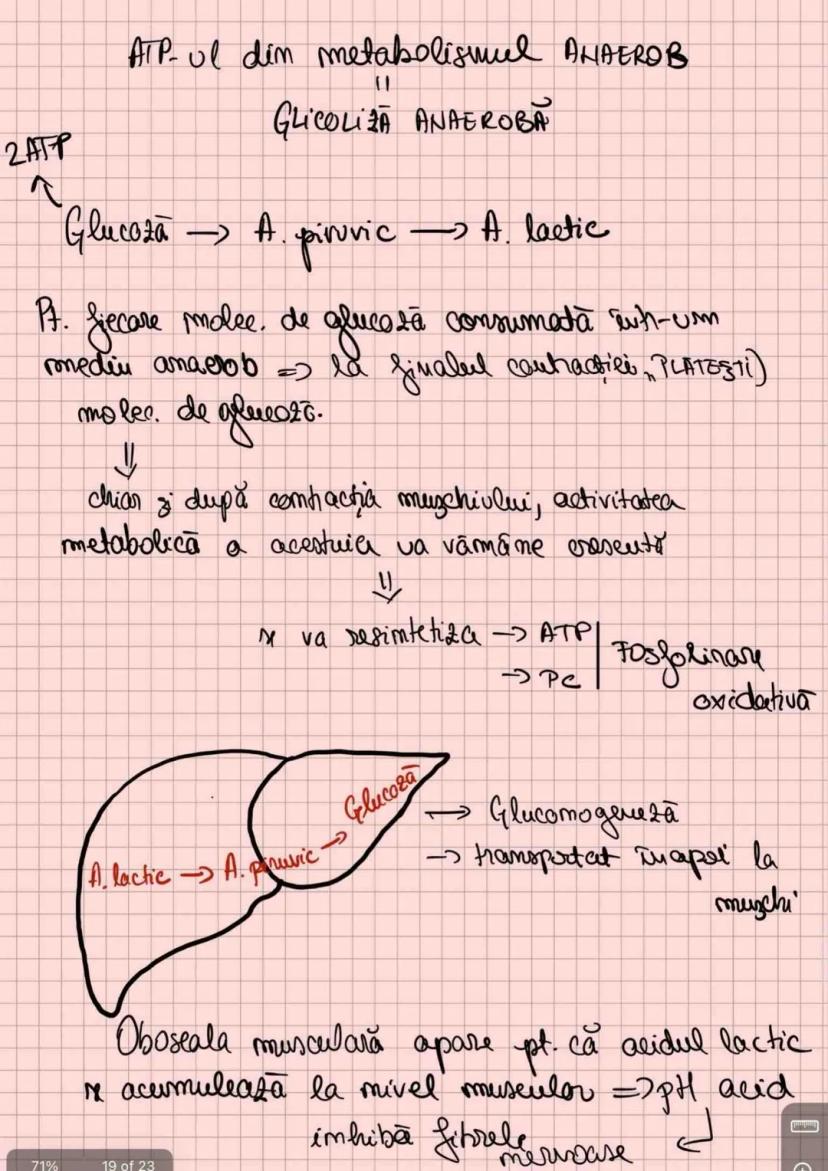 ATP-ul din metabolismul ANAEROB
=
GLICOLIZĂ ANAEROBĂ
2ATP
↑
Glucoză → A. piruvic → A. lactic
Pt. fiecare molec. de glucoză consumată într-un
mediu anaerob => la finalul contracției „PLĂTEȘTI)
molec. de glucoză.
⇓
chiar și după contracția mușchiului, activitatea
metabolică a acestuia va rămâne crescută
⇓
se va resintetiza → ATP
→ PC
Fosforilare
oxidativă
A. lactic → A. piruvic → Glucoză
→ Gluconogeneză
→ transportat înapoi la
mușchi
Oboseala musculară apare pt. că acidul lactic
se acumulează la nivel muscular => pH acid
inhibă fibrele nervoase
71% 19 of 23